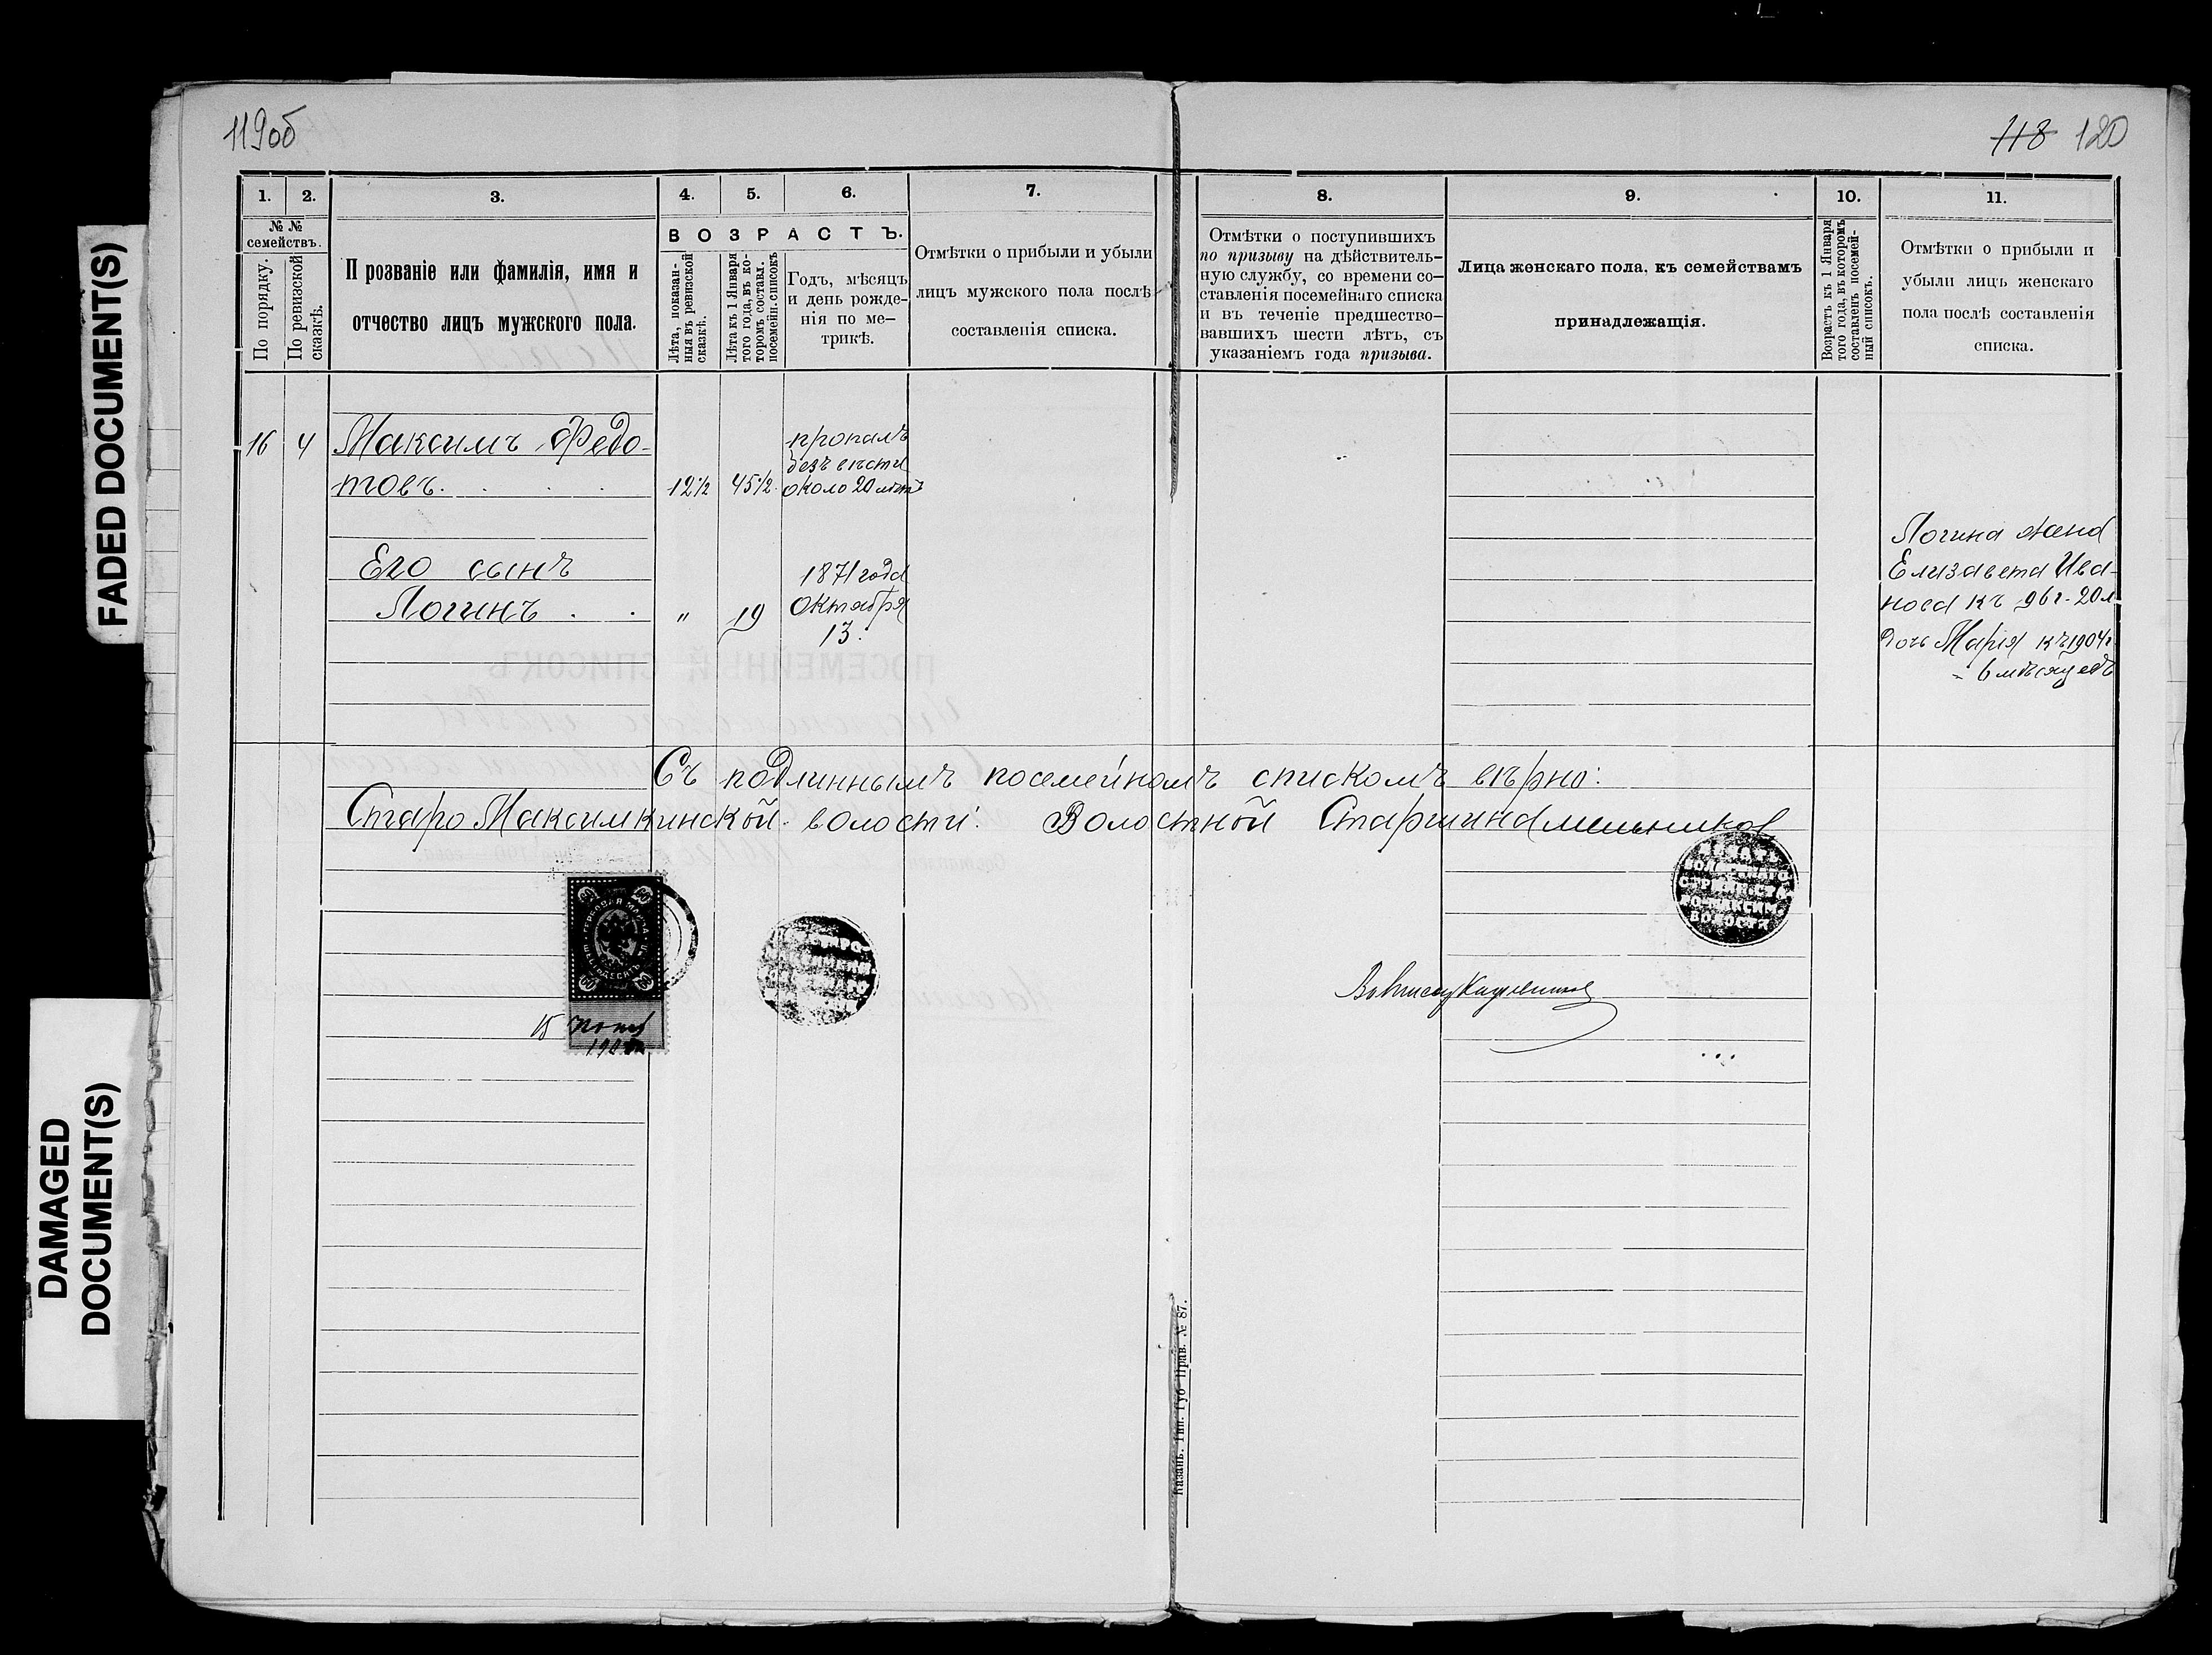 FADED DOCUMENT(S)
DAMAGED
DOCUMENT(S)
119об
118 120
1.
2.
3.
4.
5.
6.
7.
8.
9.
10.
11.
№ №
семействъ.
По порядку.
По ревизской
сказкѣ.
Прозваніе или фамилія, имя и
отчество лицъ мужского пола.
ВОЗРАСТЪ.
Лѣта, показан-
ныя въ ревизской
сказкѣ.
Лѣта къ 1 Января
того года, въ ко-
торомъ составл.
посемейн. списокъ
Годъ, мѣсяцъ
и день рожде-
нія по ме-
трикѣ.
Отмѣтки о прибыли и убыли
лицъ мужского пола послѣ
составленія списка.
Отмѣтки о поступившихъ
по призыву на дѣйствитель-
ную службу, со времени со-
ставленія посемейнаго списка
и въ теченіе предшество-
вавшихъ шести лѣтъ, съ
указаніемъ года призыва.
Лица женскаго пола, къ семействамъ
принадлежащія.
Возрастъ къ 1 Января
того года, въ которомъ
составленъ посемей-
ный списокъ.
Отмѣтки о прибыли и
убыли лицъ женскаго
пола послѣ составленія
списка.
16 4 Максимъ Федо-
товъ. 12½ 45½
пропалъ
безъ вѣсти
около 20 лѣтъ
Его сынъ
Логинъ " 19
1871 года
Октября
13.
Логина жена
Елизавета Ива-
нова къ 96 г. 20 л
Дочь Марія къ 1904 г
6 мѣсяцевъ
Съ подлиннымъ посемейномъ спискомъ вѣрно:
Старо Максимкинской волости: Волостной Старшина Мельников
ПЕЧАТЬ
ВОЛОСТНАГО
СТАРШ. СТА
РО-МАКСИМ
ВОЛОСТИ
ГЕРБОВАЯ МАРКА
ШЕСТЬДЕСЯТЪ
60 60
60 60
15
Казань. Тип. Губ. Прав. № 87.